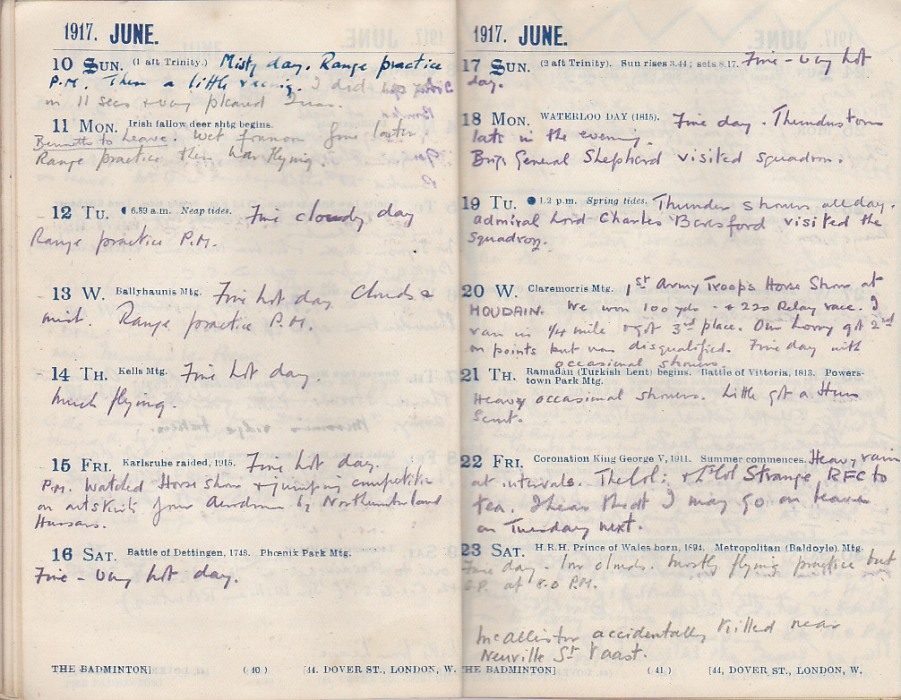 1917. JUNE.
10 SUN. (1 aft Trinity). Misty day. Range practice
P.M. Then a little raining. I did
in 11 secs & very pleased I was.
11 MON. Irish fallow deer shtg begins.
Bennetts to Leave. Wet forenoon fine later.
Range practice then war flying.
12 TU. 6.39 a.m. Neap tides. Fine cloudy day
Range practice P.M.
13 W. Ballyhaunis Mtg. Fine hot day clouds &
mist. Range practice P.M.
14 TH. Kells Mtg. Fine hot day.
Much flying.
15 FRI. Karlsruhe raided, 1915. Fine hot day.
P.M. Watched Horse show & jumping competition
on outskirts of our Aerodrome by Northumberland
Hussars.
16 SAT. Battle of Dettingen, 1743. Phœnix Park Mtg.
Fine - very hot day.
THE BADMINTON] (40) [44, DOVER ST., LONDON, W.
1917. JUNE.
17 SUN. (2 aft Trinity). Sun rises 3.44; sets 8.17. Fine - very hot
day.
18 MON. WATERLOO DAY (1815). Fine day. Thunderstorm
late in the evening.
Brig. General Shepherd visited squadron.
19 TU. 1.2 p.m. Spring tides. Thunder showers all day.
Admiral Lord Charles Beresford visited the
squadron.
20 W. Claremorris Mtg. 1st Army Troops Horse Show at
HOUDAIN. We won 100 yds & 220 Relay race. I
ran in 1/4 mile & got 3rd place. Our lorry got 2nd
on points but was disqualified. Fine day with
occasional showers.
21 TH. Ramadan (Turkish Lent) begins. Battle of Vittoria, 1813. Powers-
town Park Mtg.
Heavy occasional showers. Little got a Hun
Scout.
22 FRI. Coronation King George V, 1911. Summer commences. Heavy rain
at intervals. The Col: & Lt Col Strange RFC to
tea. I hear that I may go on leave
on Tuesday next.
23 SAT. H.R.H. Prince of Wales born, 1894. Metropolitan (Baldoyle) Mtg.
Fine day. low clouds. Mostly flying practice but
O.P. at 8.0 P.M.
McAllister accidentally killed near
Neuville St Vaast.
THE BADMINTON] (41) [44, DOVER ST., LONDON, W.